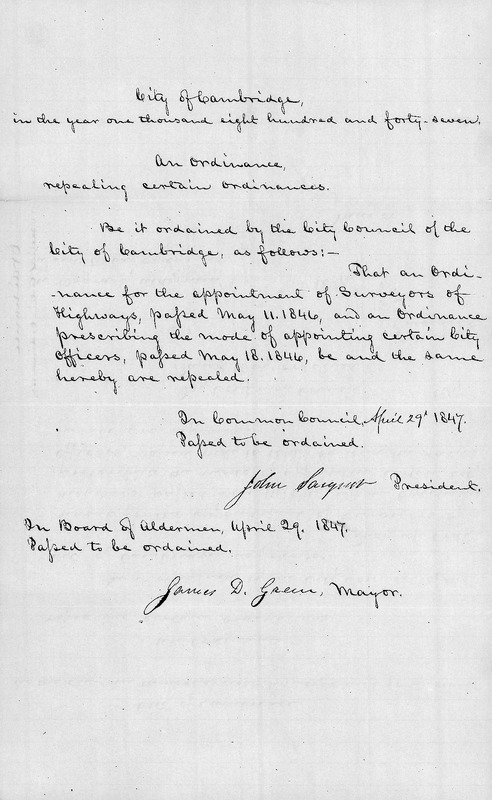 City of Cambridge,
in the year one thousand eight hundred and forty-seven.
An Ordinance,
repealing certain Ordinances.
Be it ordained by the City Council of the
City of Cambridge, as follows:—
That an Ordi-
-nance for the appointment of Surveyors of
Highways, paſsed May 11. 1846, and an Ordinance
prescribing the mode of appointing certain City
Officers, paſsed May 18. 1846, be and the same
hereby are repealed.
In Common Council, April 29th 1847.
Paſsed to be ordained.
John Sargent President.
In Board of Aldermen, April 29. 1847.
Paſsed to be ordained.
James D. Green, Mayor.